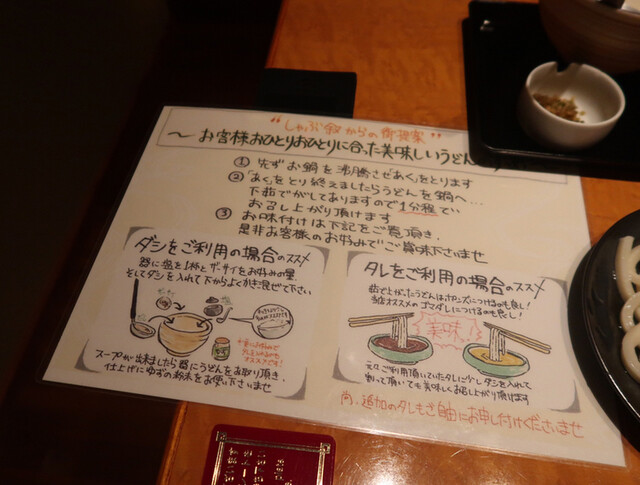 "しゃぶ叙からの御提案"
～お客様おひとりおひとりに合った美味しいうどん
① 先ずお鍋を沸騰させあくをとります
② 「あく」をとり終えましたらうどんを鍋へ…
下茹でがしてありますので1分程で
お召し上がり頂けます
③ お味付けは下記をご覧頂き、
是非お客様のお好みでご賞味下さいませ
ダシをご利用の場合のススメ
器に塩を1杯とザーサイをお好みの量
そしてダシを入れて下からよくかき混ぜて下さい
スープが出来ましたら器にうどんをお取り頂き、
仕上げにゆずの粉末をお使い下さいませ
タレをご利用の場合のススメ
茹で上がったうどんはポン酢につけるのも良し!
当店オススメのゴマダレにつけるのも良し!
美味
元々ご利用頂いていたタレに少しダシを入れて
割って頂いても美味しくお召し上がり頂けます
尚、追加のタレもご自由にお申し付けくださいませ